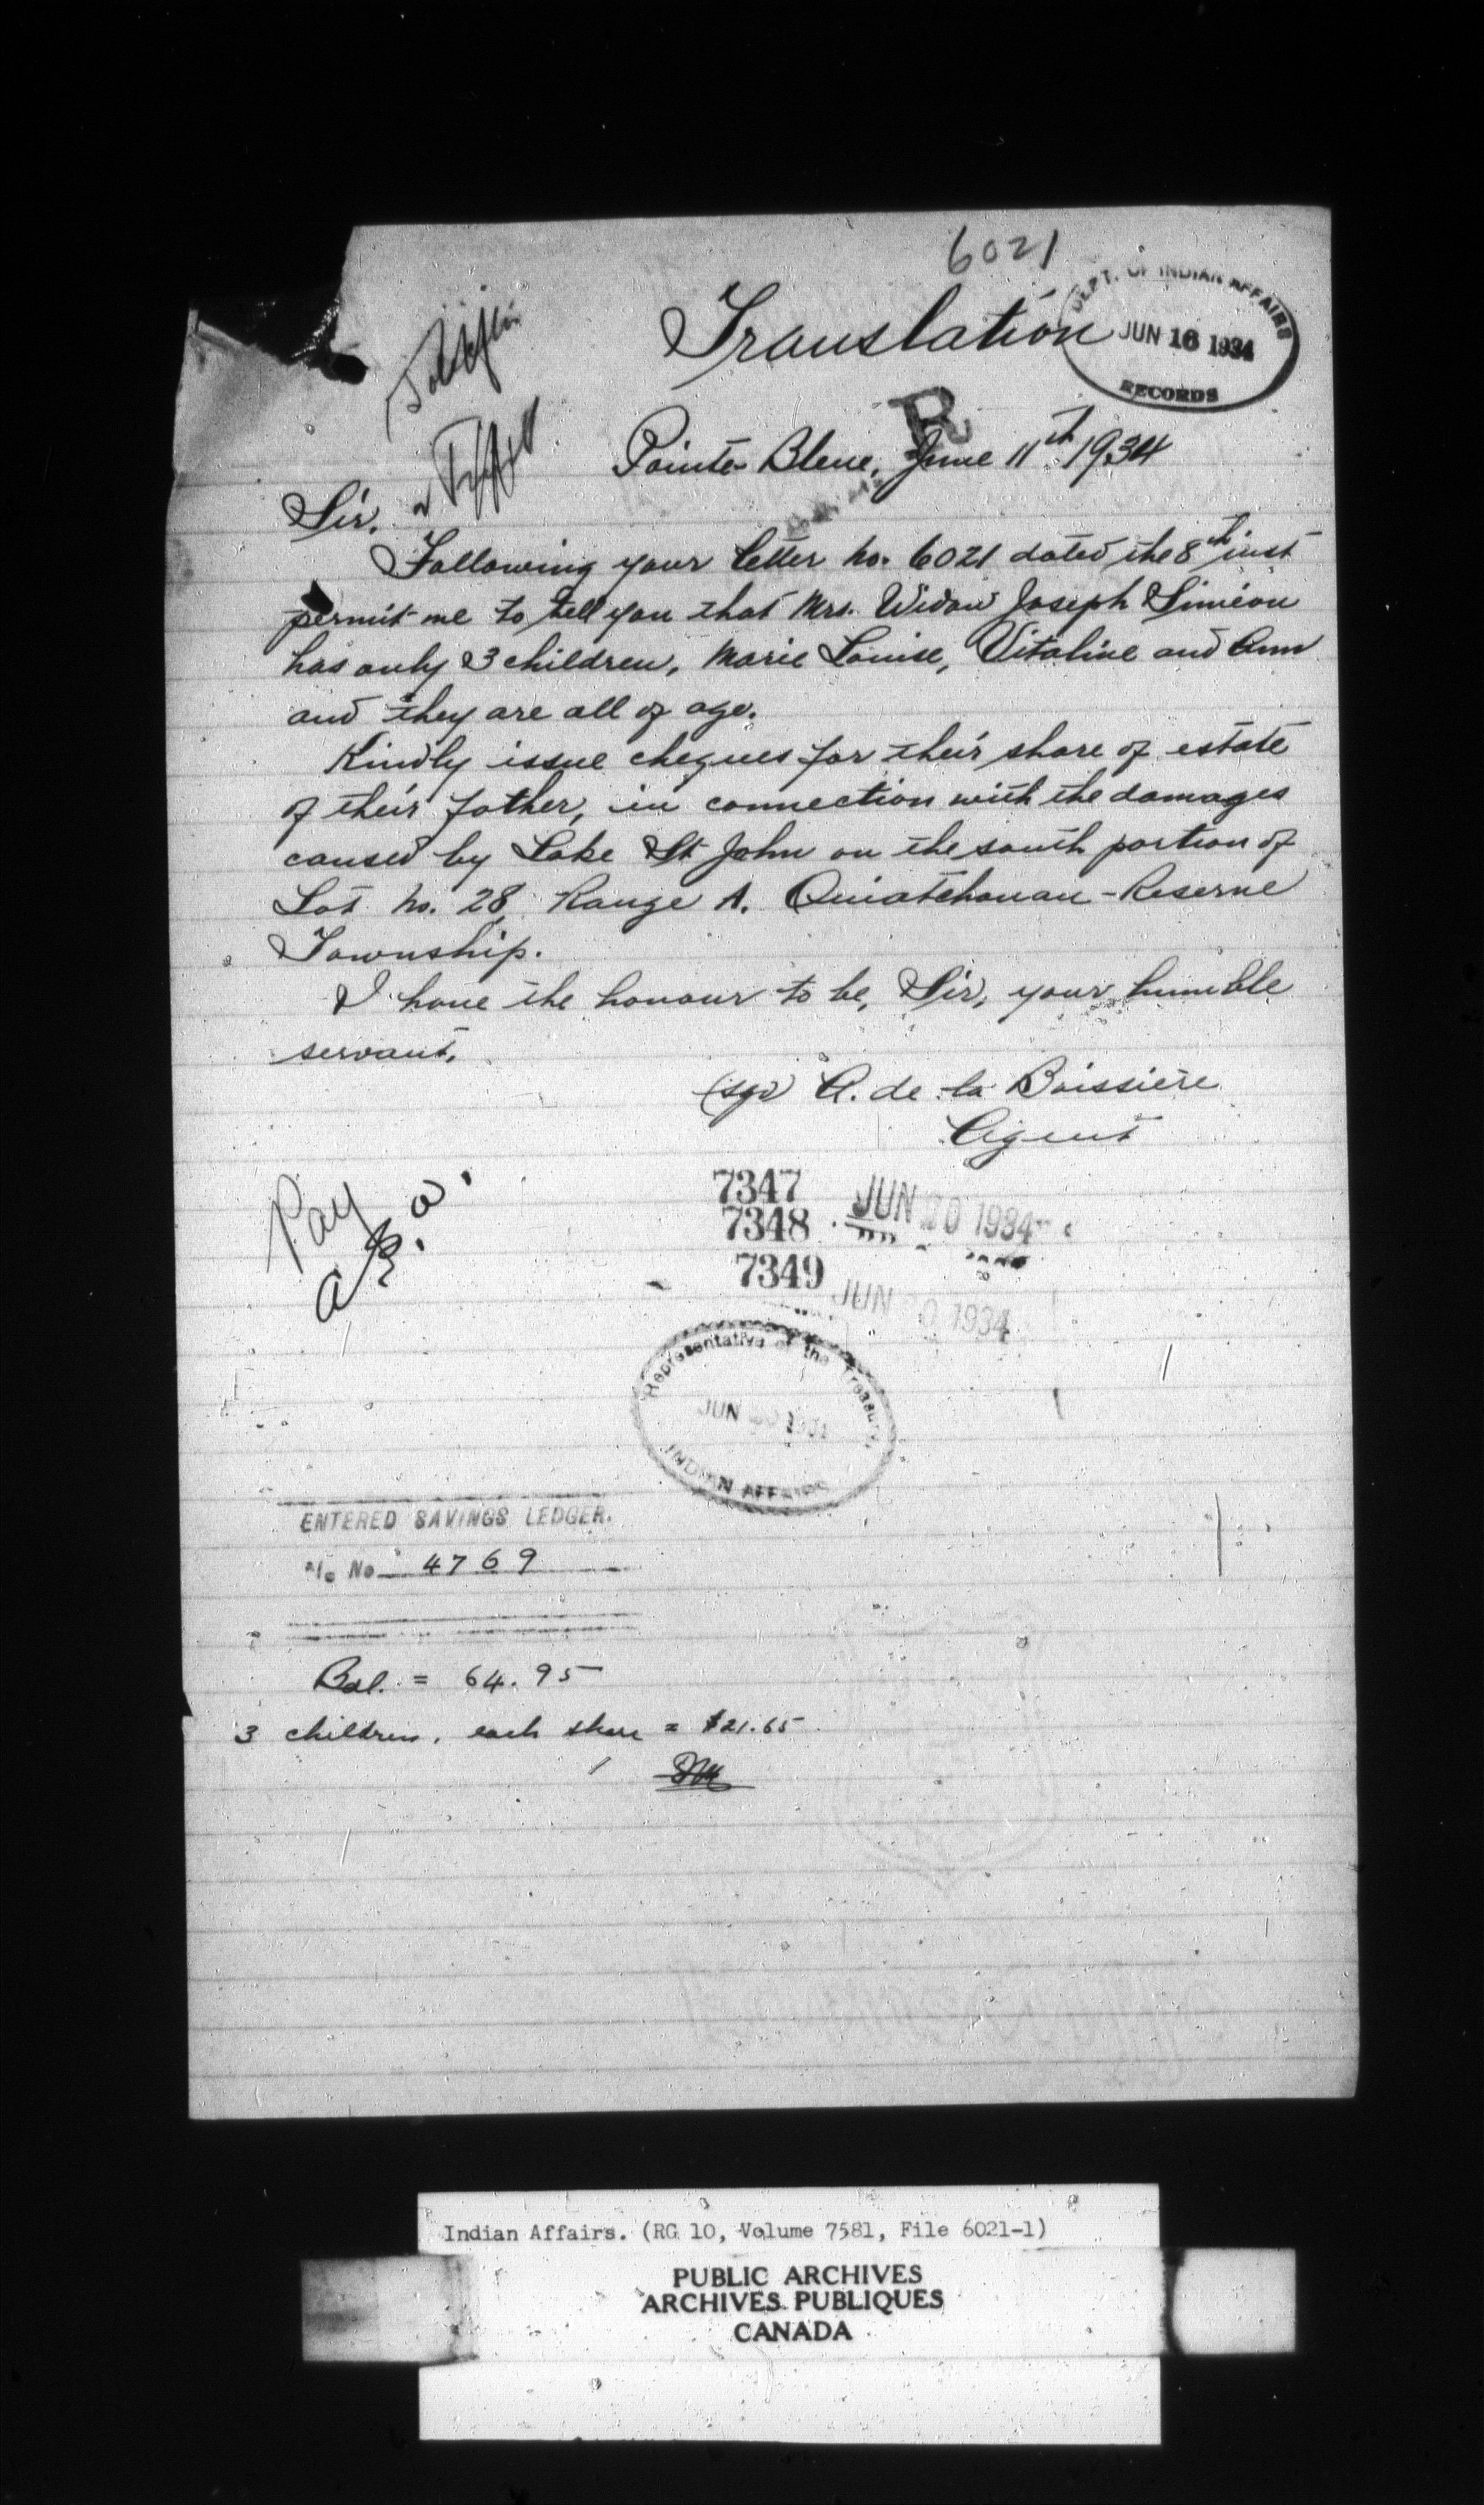 6021
Translation
DEPT. OF INDIAN AFFAIRS
JUN 16 1934
RECORDS
R
Pointe-Bleue, June 11th 1934
Sir,
Following your letter no. 6021 dated the 8th inst
permit me to tell you that Mrs. Widow Joseph Simeon
has only 3 children, Marie Louise, Vitaline and Ann
and they are all of age.
Kindly issue cheques for their share of estate
of their father, in connection with the damages
caused by Lake St John on the south portion of
Lot no. 28, Range A. Ouiatchouan-Reserve
Township.
I have the honour to be, Sir, your humble
servant,
(sgd) A. de la Boissiere
Agent
Pay
7347
7348 JUN 20 1934
7349 JUN 20 1934
Representative of the Treasury
JUN 20
INDIAN AFFAIRS
ENTERED SAVINGS LEDGER.
a/c No 4769
Bal. = 64.95
3 children, each share = $21.65
Indian Affairs. (RG 10, Volume 7581, File 6021-1)
PUBLIC ARCHIVES
ARCHIVES PUBLIQUES
CANADA